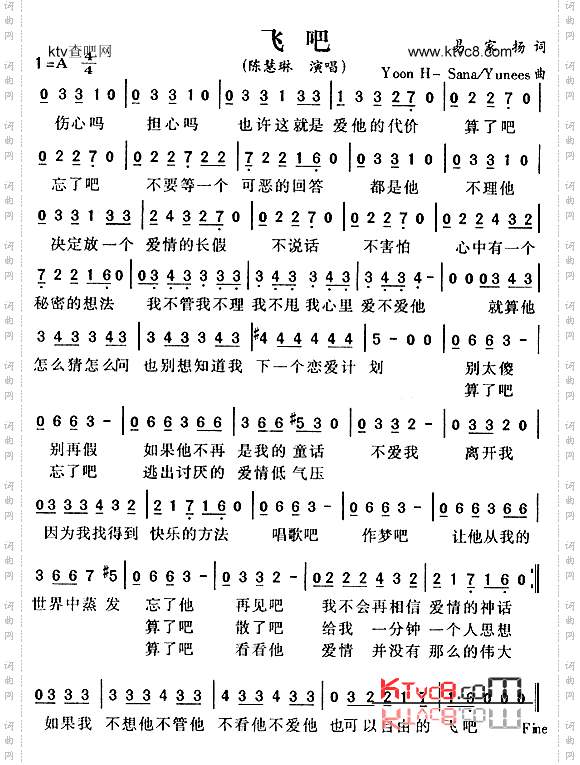 飞吧
ktv查吧网
www.ktvc8.com
易家扬 词
1=A 4/4
(陈慧琳 演唱)
Yoon H- Sana/Yunees 曲
0 3 3 1 0 | 0 3 3 1 0 | 0 3 3 1 3 3 | 1 3 3 2 7 0 | 0 2 2 7 0 |
伤心吗 担心吗 也许这就是 爱他的代价 算了吧
0 2 2 7 0 | 0 2 2 7 2 2 | 7 2 2 1 6 0 | 0 3 3 1 0 | 0 3 3 1 0 |
忘了吧 不要等一个 可恶的回答 都是他 不理他
0 3 3 1 3 3 | 2 4 3 2 7 0 | 0 2 2 7 0 | 0 2 2 7 0 | 0 2 2 4 3 2 |
决定放一个 爱情的长假 不说话 不害怕 心中有一个
7 2 2 1 6 0 | 0 3 4 3 3 3 3 | 3 4 3 3 3 3 | 3 4 3 3 4 - | 0 0 0 3 4 3 |
秘密的想法 我不管我不理 我不甩我心里 爱不爱他 就算他
3 4 3 3 4 3 | 3 4 3 3 4 3 | #4 4 4 4 4 4 | 5 - 0 0 | 0 6 6 3 - |
怎么猜怎么问 也别想知道我 下一个恋爱计 划 别太傻
算了吧
0 6 6 3 - | 0 6 6 3 6 6 | 3 6 6 #5 3 0 | 0 3 3 2 - | 0 3 3 2 0 |
别再假 如果他不再 是我的 童话 不爱我 离开我
忘了吧 逃出讨厌的 爱情低 气压
0 3 3 3 3 4 3 2 | 2 1 7 1 6 0 | 0 6 6 3 - | 0 6 6 3 - | 0 6 6 3 6 6 |
因为我找得到 快乐的方法 唱歌吧 作梦吧 让他从我的
3 6 6 7 #5 | 0 3 3 2 - | 0 3 3 2 - | 0 2 2 2 4 3 2 | 2 1 7 1 6 0 :||
世界中蒸 发 忘了他 再见吧 我不会再相信 爱情的神话
算了吧 散了吧 给我 一分钟 一个人思想
算了吧 看看他 爱情 并没有 那么的伟大
KTvc8.com
0 3 4 3 3 | 3 4 3 3 3 3 | 4 3 3 3 3 3 | 0 3 2 2 2 7 | 1 6 0 0 0 ||
如果我 不想他不管他 不看他不爱他 也可以自由的 飞吧 Fine
词曲网